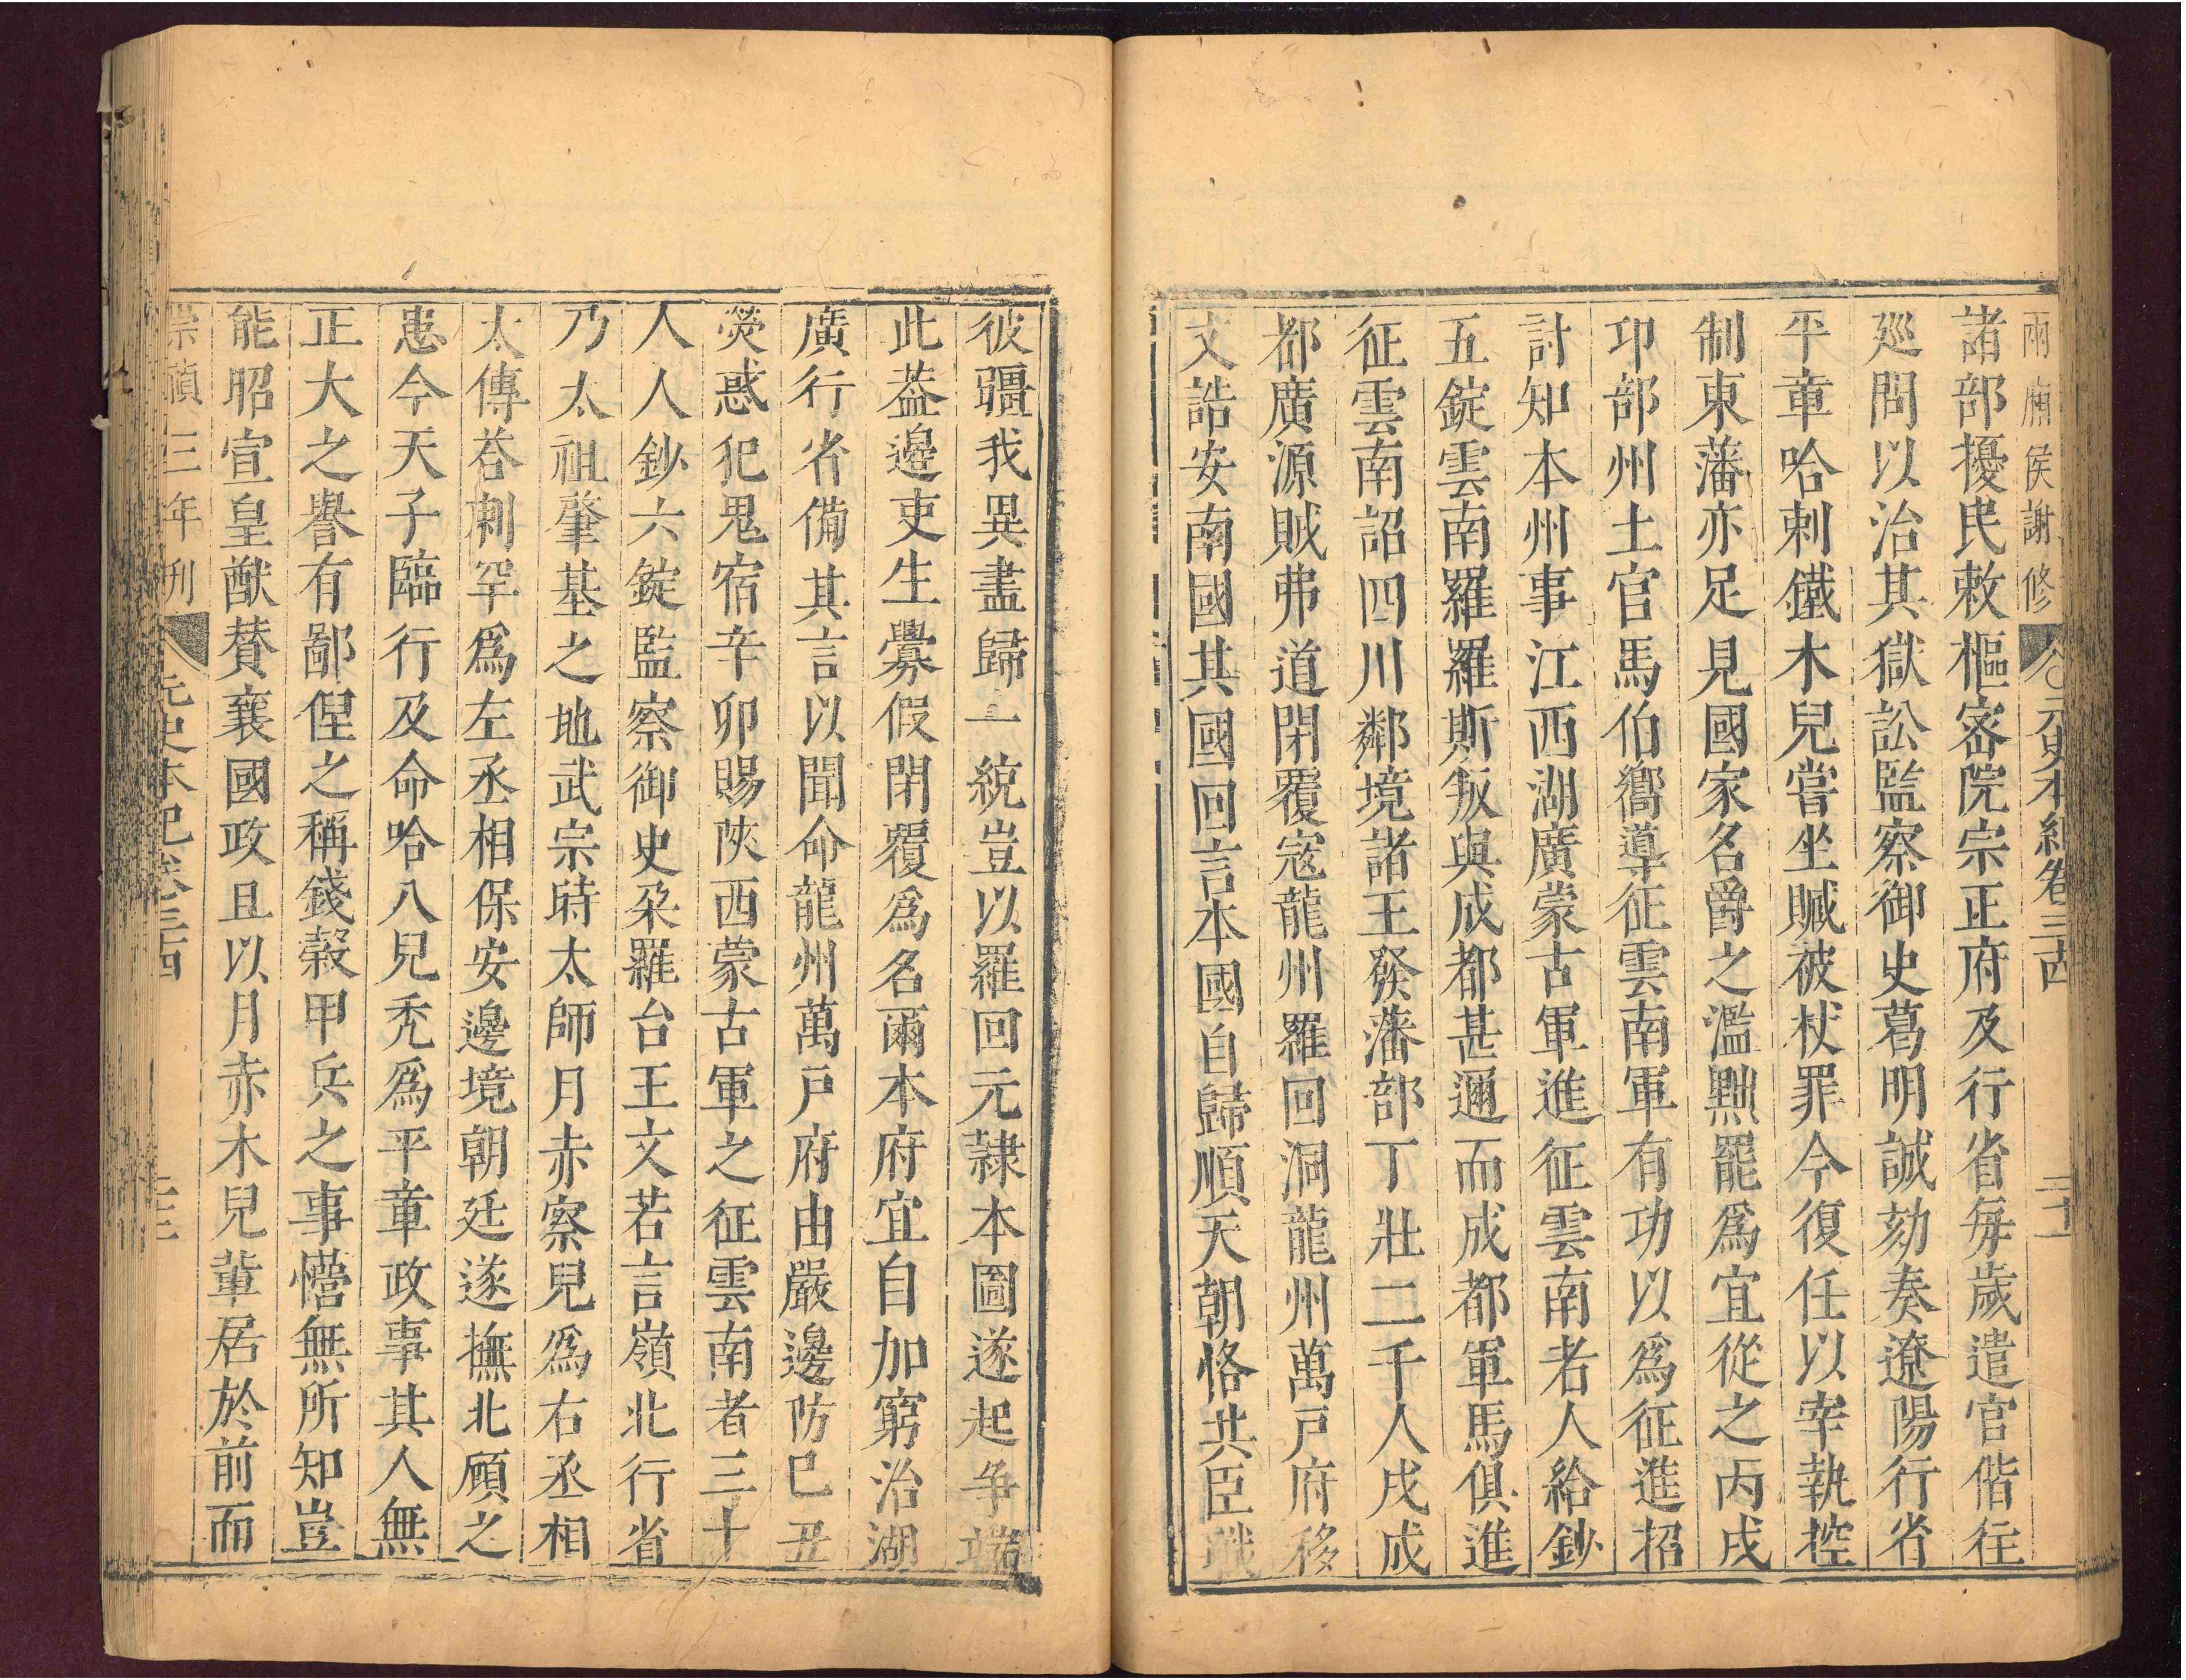 兩廂侯謝修 元史本紀卷三十四 二十一
諸部擾民敕樞密院宗正府及行省每歲遣官偕往
廵問以治其獄訟監察御史葛明誠劾奏遼陽行省
平章哈剌鐵木兒嘗坐贓被杖罪今復任以宰執控
制東藩亦足見國家名爵之濫黜罷爲宜從之丙戌
卭部州土官馬伯嚮導征雲南軍有功以爲征進招
討知本州事江西湖廣蒙古軍進征雲南者人給鈔
五錠雲南羅羅斯叛與成都甚邇而成都軍馬俱進
征雲南詔四川鄰境諸王發藩部丁壯二千人戍成
都廣源賊弗道閉覆寇龍州羅回洞龍州萬戸府移
文詰安南國其國回言本國自歸順天朝恪共臣職
彼疆我異盡歸一統豈以羅回元隸本國遂起争端
此葢邊吏生釁假閉覆爲名爾本府宜自加窮治湖
廣行省備其言以聞命龍州萬戸府由嚴邊防巳丑
熒惑犯鬼宿辛卯賜陜西蒙古軍之征雲南者三十
人人鈔六錠監察御史朶羅台王文若言嶺北行省
乃太祖肇基之地武宗時太師月赤察兒爲右丞相
太傳荅剌罕爲左丞相保安邊境朝廷遂撫北顧之
患今天子臨行及命哈八兒禿爲平章政事其人無
正大之譽有鄙俚之稱錢穀甲兵之事懵無所知豈
能昭宣皇猷賛襄國政且以月赤木兒輩居於前而
崇禎三年刋 元史本紀卷三十四